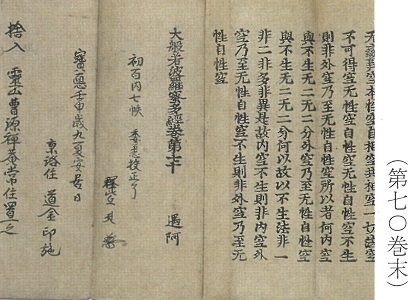 无變異空本性空自相空共相空一切法空
不可得空无性空自性空无性自性空不生
則非外空乃至无性自性空所以者何内空
與不生无二无二分外空乃至无性自性空
與不生无二无二分何以故以不生法非一
非二非多非異是故内空不生則非内空外
空乃至无性自性空不生則非外空乃至无
性自性空
大般若波羅蜜多經卷第七十 遇阿
初百内七帙 校正了
寶 壬申歳九夏安居日
東 住 道金 印施
捨入 霊山曹源禪菴常住置之
(第七〇巻末)